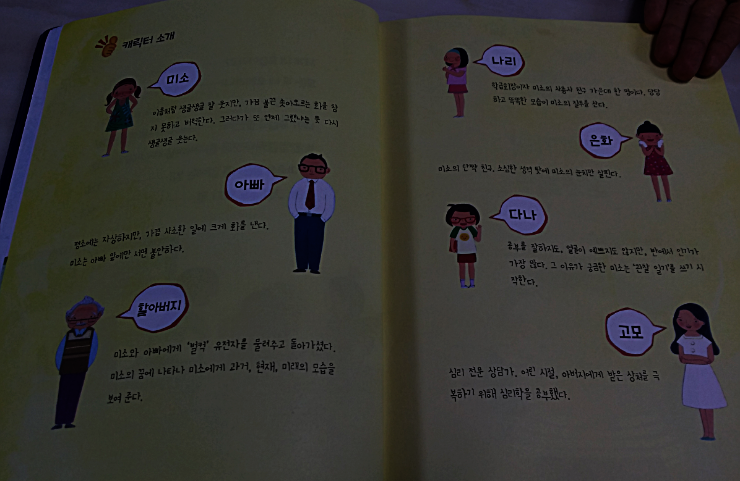 캐릭터 소개
미소
이름처럼 생글생글 잘 웃지만, 가끔 불끈 솟아오르는 화를 참
지 못하고 버럭한다. 그러다가 또 언제 그랬냐는 듯 다시
생글생글 웃는다.
아빠
평소에는 자상하지만, 가끔 사소한 일에 크게 화를 낸다.
미소는 아빠 앞에만 서면 불안하다.
할아버지
미소와 아빠에게 '벌컥' 유전자를 물려주고 돌아가셨다.
미소의 꿈에 나타나 미소에게 과거, 현재, 미래의 모습을
보여 준다.
나리
미소의 친구 가운데 한 명이다.
하고 똑똑한 모습이 미소의 샘을 산다.
은화
미소의 단짝 친구. 소심한 성격 탓에 미소의 눈치만 살핀다.
다나
공부를 잘하지도, 얼굴이 예쁘지도 않지만, 반에서 인기가
가장 많다. 그 이유가 궁금한 미소는 '관찰 일기'를 쓰기 시
작한다.
고모
심리 전문 상담가. 어린 시절, 아버지에게 받은 상처를 극
복하기 위해 심리학을 공부했다.